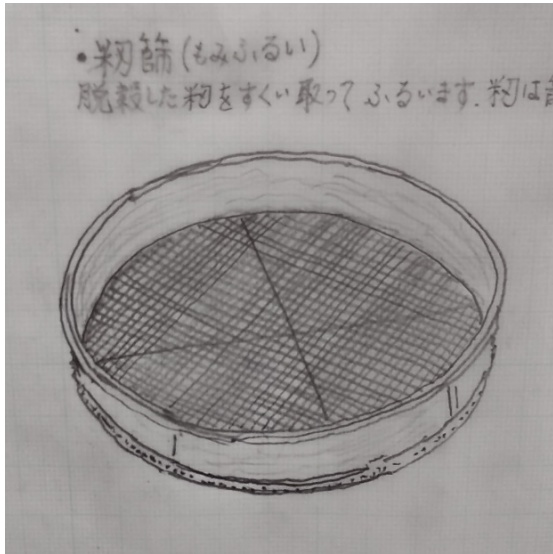 ・籾篩(もみふるい)
脱穀した籾をすくい取って ふるいます.籾は